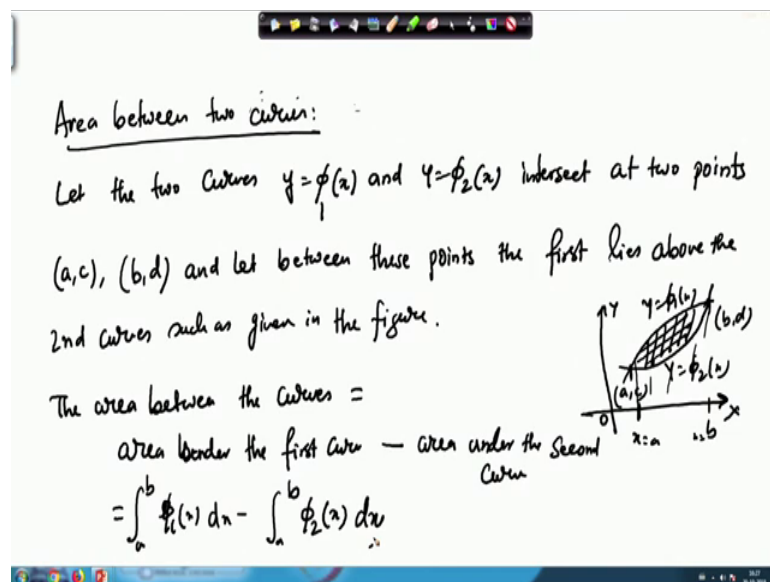 Area between two curves:
Let the two curves y=ϕ₁(x) and y=ϕ₂(x) intersect at two points
(a,c), (b,d) and let between these points the first lies above the
2nd curves such as given in the figure.
Y
y=ϕ₁(x)
(b,d)
y=ϕ₂(x)
(a,c)
O
x=a
b
X
The area between the curves =
area under the first curve — area under the second
curve
= ∫ₐᵇ ϕ₁(x) dx - ∫ₐᵇ ϕ₂(x) dx